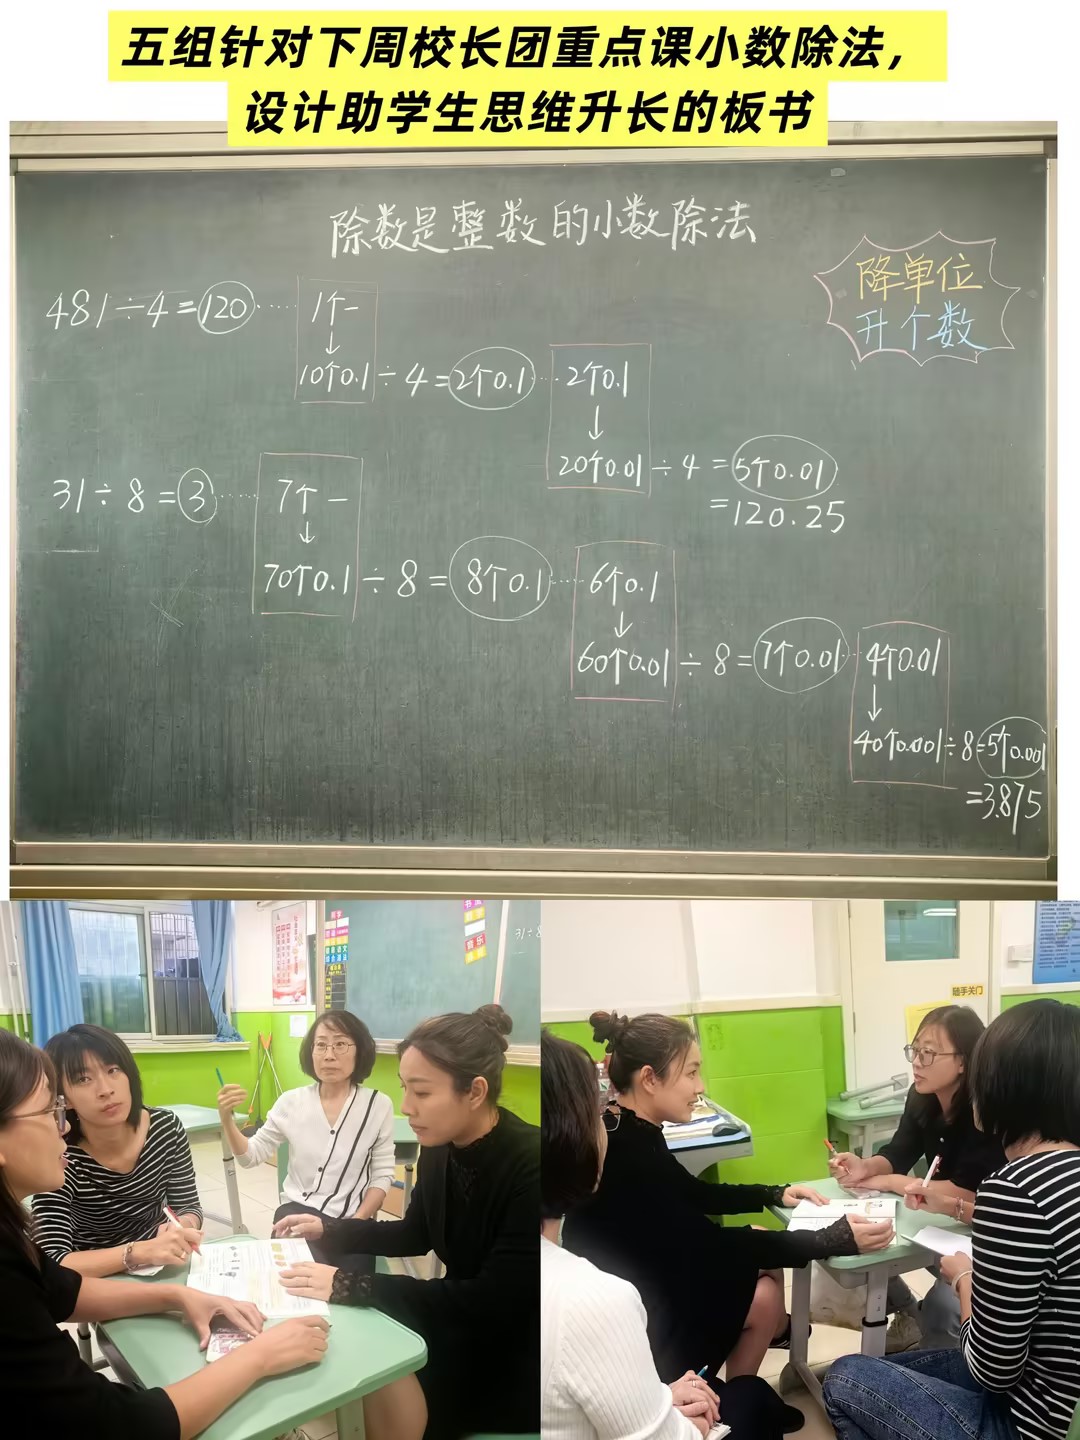 五组针对下周校长团重点课小数除法，
设计助学生思维升长的板书
除数是整数的小数除法
降单位
升个数
481÷4=120……1个一
↓
10个0.1÷4=2个0.1…2个0.1
↓
20个0.01÷4=5个0.01
=120.25
31÷8=3……7个一
↓
70个0.1÷8=8个0.1…6个0.1
↓
60个0.01÷8=7个0.01…4个0.01
↓
40个0.001÷8=5个0.001
=3.875
31÷8
随手关门